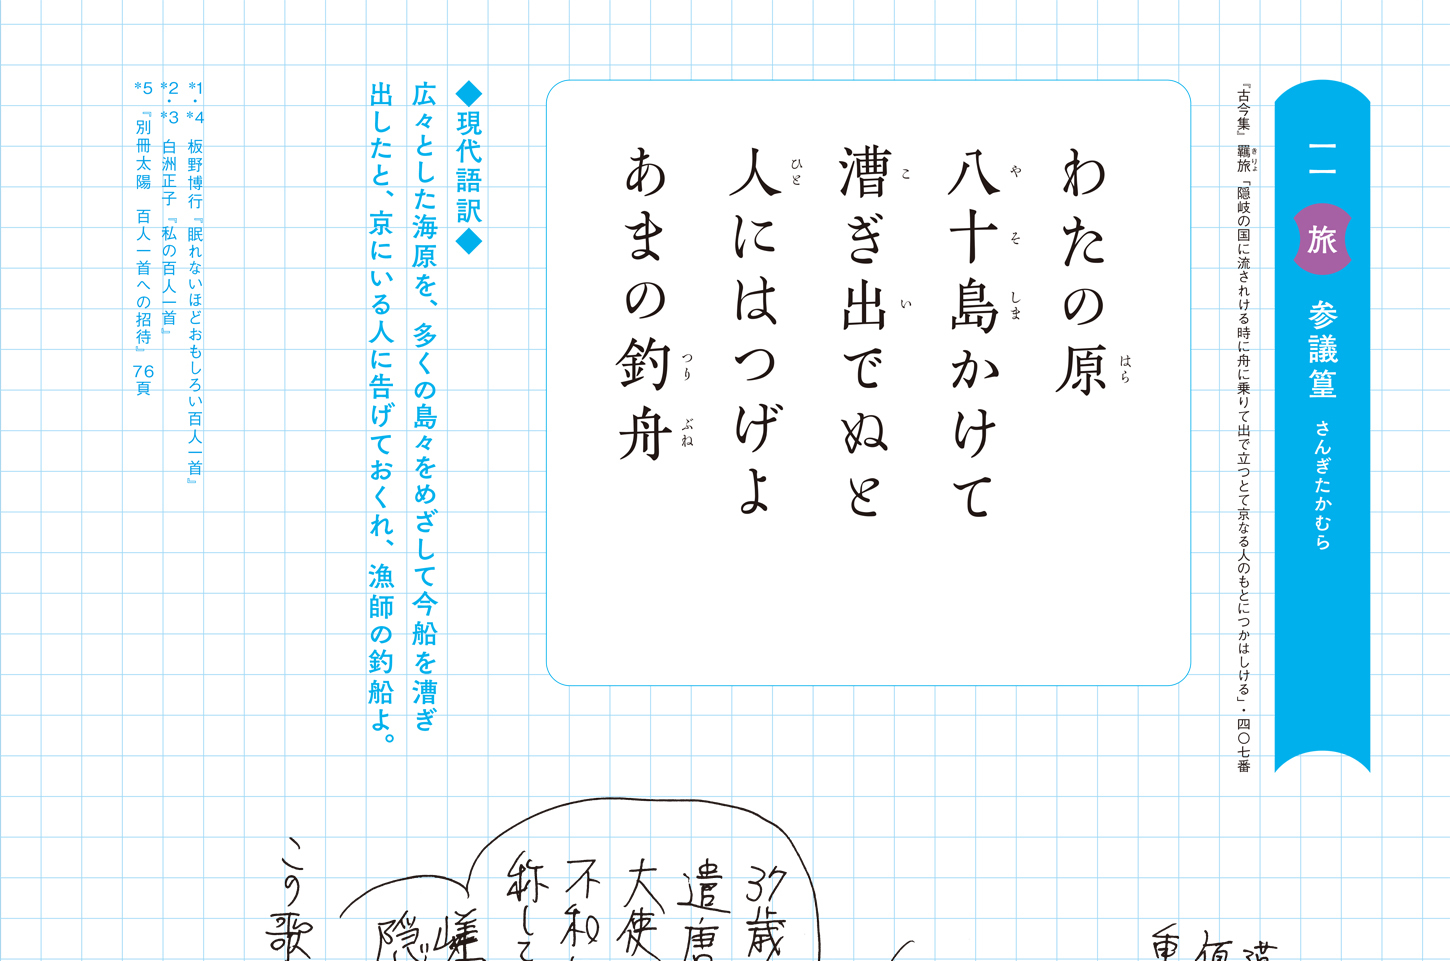 一一 旅 参議篁 さんぎたかむら
『古今集』羈旅「隠岐の国に流されける時に舟に乗りて出で立つとて京なる人のもとにつかはしける」・四〇七番
きりょ
わたの原
はら
八十島かけて
や そ しま
漕ぎ出でぬと
こ い
人にはつげよ
ひと
あまの釣舟
つり ぶね
◆現代語訳◆
広々とした海原を、多くの島々をめざして今船を漕ぎ
出したと、京にいる人に告げておくれ、漁師の釣船よ。
*1・*4 板野博行『眠れないほどおもしろい百人一首』
*2・*3 白洲正子『私の百人一首』
*5 『別冊太陽 百人一首への招待』76頁
37歳
遣唐
大使
不和
称して
嵯
隠
この歌